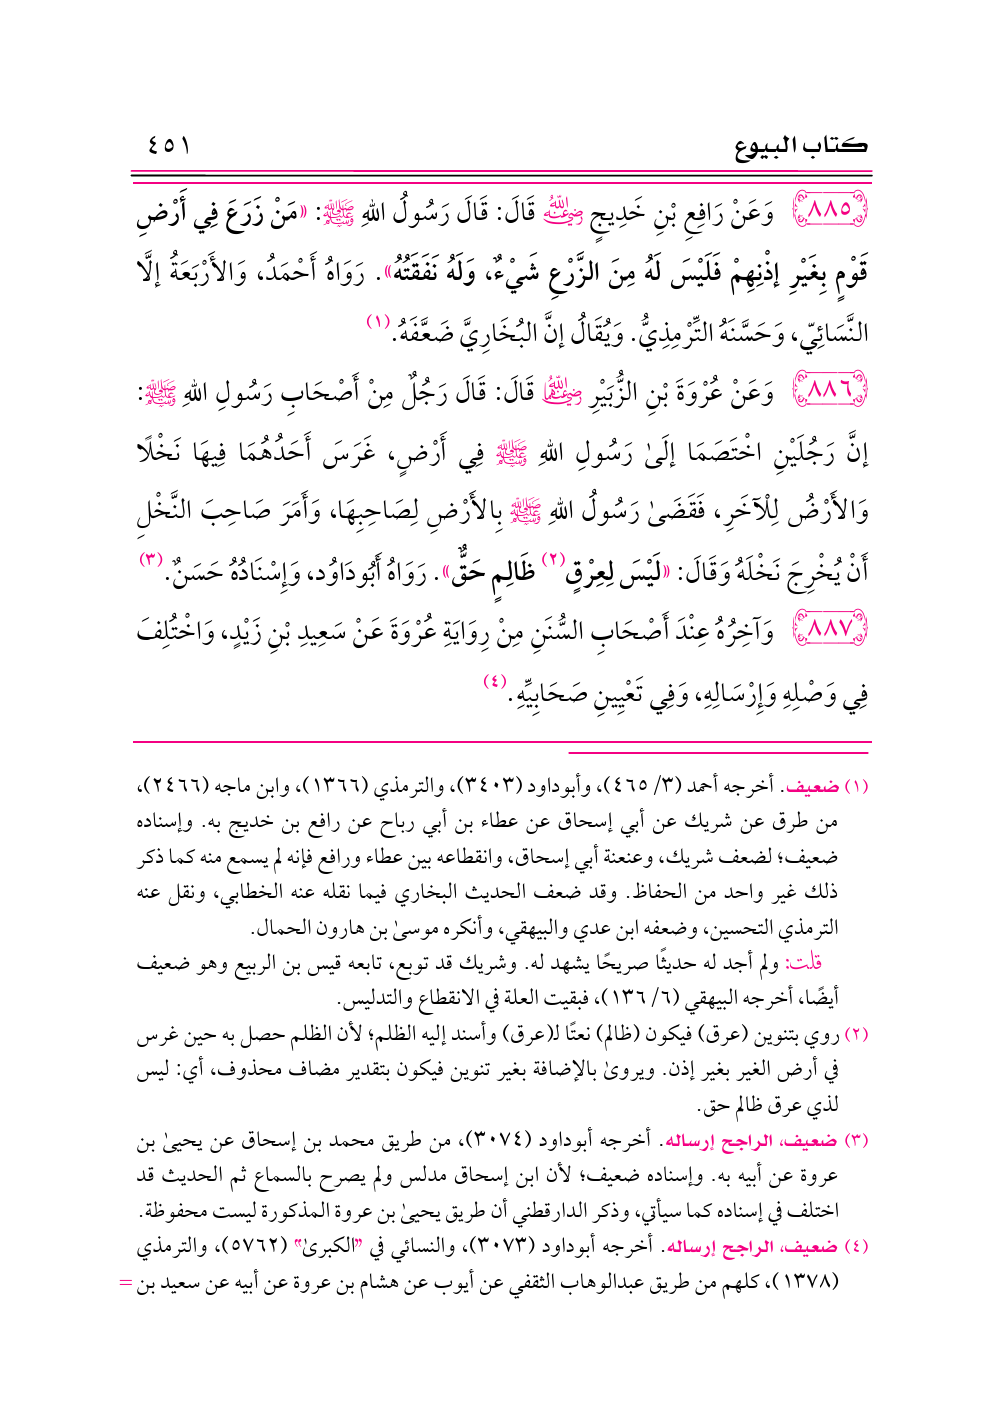 كتاب البيوع ٤٥١
٨٨٥ وَعَنْ رَافِعِ بْنِ خَدِيجٍ ﵁ قَالَ: قَالَ رَسُولُ اللهِ ﷺ: «مَنْ زَرَعَ فِي أَرْضِ
قَوْمٍ بِغَيْرِ إِذْنِهِمْ فَلَيْسَ لَهُ مِنَ الزَّرْعِ شَيْءٌ، وَلَهُ نَفَقَتُهُ». رَوَاهُ أَحْمَدُ، وَالأَرْبَعَةُ إلَّا
النَّسَائِيّ، وَحَسَّنَهُ التِّرْمِذِيُّ. وَيُقَالُ إنَّ البُخَارِيَّ ضَعَّفَهُ.(١)
٨٨٦ وَعَنْ عُرْوَةَ بْنِ الزُّبَيْرِ ﵄ قَالَ: قَالَ رَجُلٌ مِنْ أَصْحَابِ رَسُولِ اللهِ ﷺ:
إنَّ رَجُلَيْنِ اخْتَصَمَا إلَىٰ رَسُولِ اللهِ ﷺ فِي أَرْضٍ، غَرَسَ أَحَدُهُمَا فِيهَا نَخْلًا
وَالأَرْضُ لِلْآخَرِ، فَقَضَىٰ رَسُولُ اللهِ ﷺ بِالأَرْضِ لِصَاحِبِهَا، وَأَمَرَ صَاحِبَ النَّخْلِ
أَنْ يُخْرِجَ نَخْلَهُ وَقَالَ: «لَيْسَ لِعِرْقٍ(٢) ظَالِمٍ حَقٌّ». رَوَاهُ أَبُودَاوُد، وَإِسْنَادُهُ حَسَنٌ.(٣)
٨٨٧ وَآخِرُهُ عِنْدَ أَصْحَابِ السُّنَنِ مِنْ رِوَايَةِ عُرْوَةَ عَنْ سَعِيدِ بْنِ زَيْدٍ، وَاخْتُلِفَ
فِي وَصْلِهِ وَإِرْسَالِهِ، وَفِي تَعْيِينِ صَحَابِيِّهِ.(٤)
(١) ضعيف. أخرجه أحمد (٣/ ٤٦٥)، وأبوداود (٣٤٠٣)، والترمذي (١٣٦٦)، وابن ماجه (٢٤٦٦)،
من طرق عن شريك عن أبي إسحاق عن عطاء بن أبي رباح عن رافع بن خديج به. وإسناده
ضعيف؛ لضعف شريك، وعنعنة أبي إسحاق، وانقطاعه بين عطاء ورافع فإنه لم يسمع منه كما ذكر
ذلك غير واحد من الحفاظ. وقد ضعف الحديث البخاري فيما نقله عنه الخطابي، ونقل عنه
الترمذي التحسين، وضعفه ابن عدي والبيهقي، وأنكره موسىٰ بن هارون الحمال.
قلت: ولم أجد له حديثًا صريحًا يشهد له. وشريك قد توبع، تابعه قيس بن الربيع وهو ضعيف
أيضًا، أخرجه البيهقي (٦/ ١٣٦)، فبقيت العلة في الانقطاع والتدليس.
(٢) روي بتنوين (عرق) فيكون (ظالم) نعتًا لـ(عرق) وأسند إليه الظلم؛ لأن الظلم حصل به حين غرس
في أرض الغير بغير إذن. ويروىٰ بالإضافة بغير تنوين فيكون بتقدير مضاف محذوف، أي: ليس
لذي عرق ظالم حق.
(٣) ضعيف، الراجح إرساله. أخرجه أبوداود (٣٠٧٤)، من طريق محمد بن إسحاق عن يحيىٰ بن
عروة عن أبيه به. وإسناده ضعيف؛ لأن ابن إسحاق مدلس ولم يصرح بالسماع ثم الحديث قد
اختلف في إسناده كما سيأتي، وذكر الدارقطني أن طريق يحيىٰ بن عروة المذكورة ليست محفوظة.
(٤) ضعيف، الراجح إرساله. أخرجه أبوداود (٣٠٧٣)، والنسائي في "الكبرىٰ" (٥٧٦٢)، والترمذي
(١٣٧٨)، كلهم من طريق عبدالوهاب الثقفي عن أيوب عن هشام بن عروة عن أبيه عن سعيد بن =